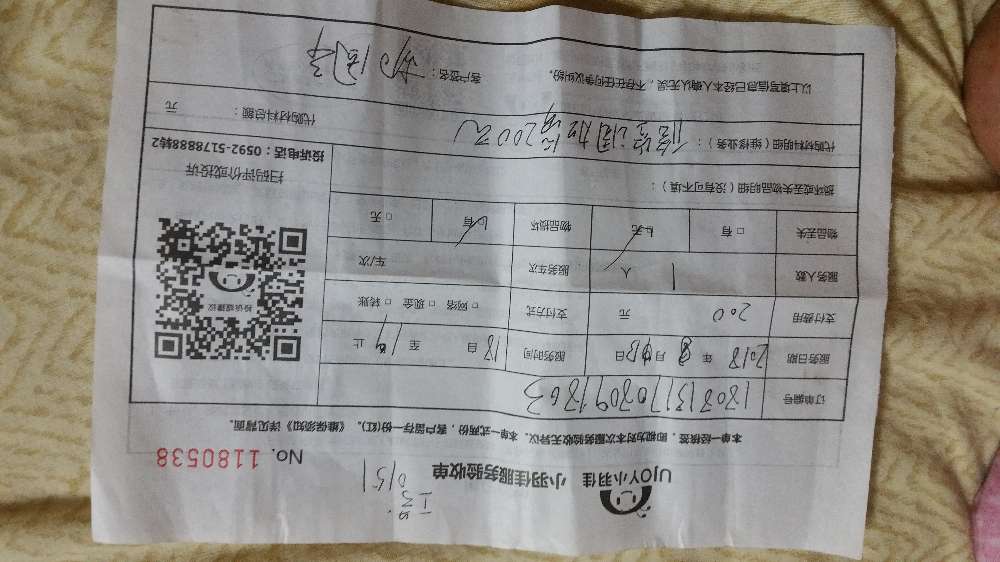 UJOY小羽佳 小羽佳服务验收单
No. 1180538
本单一经核签,即视为对本次服务验收无异议。本单一式两份,客户留存一份(红)。《维保须知》详见背面。
订单编号
服务日期 2018 年 8 月 13 日 服务时间 18 自 至 19 止
支付费用 200 元 支付方式 □网络 □现金 □转账
服务人数 1 人 服务车次 车/次
物品丢失 □有 □无 物品损坏 □有 □无
损坏或丢失物品明细(没有可不填):
投诉建议
扫码评价或投诉
投诉电话:0592-5178888转2
代购材料明细(维修业务): 200元
代购材料总额: 元
以上填写信息已经本人确认无误,不存在任何争议纠纷。 客户签名: